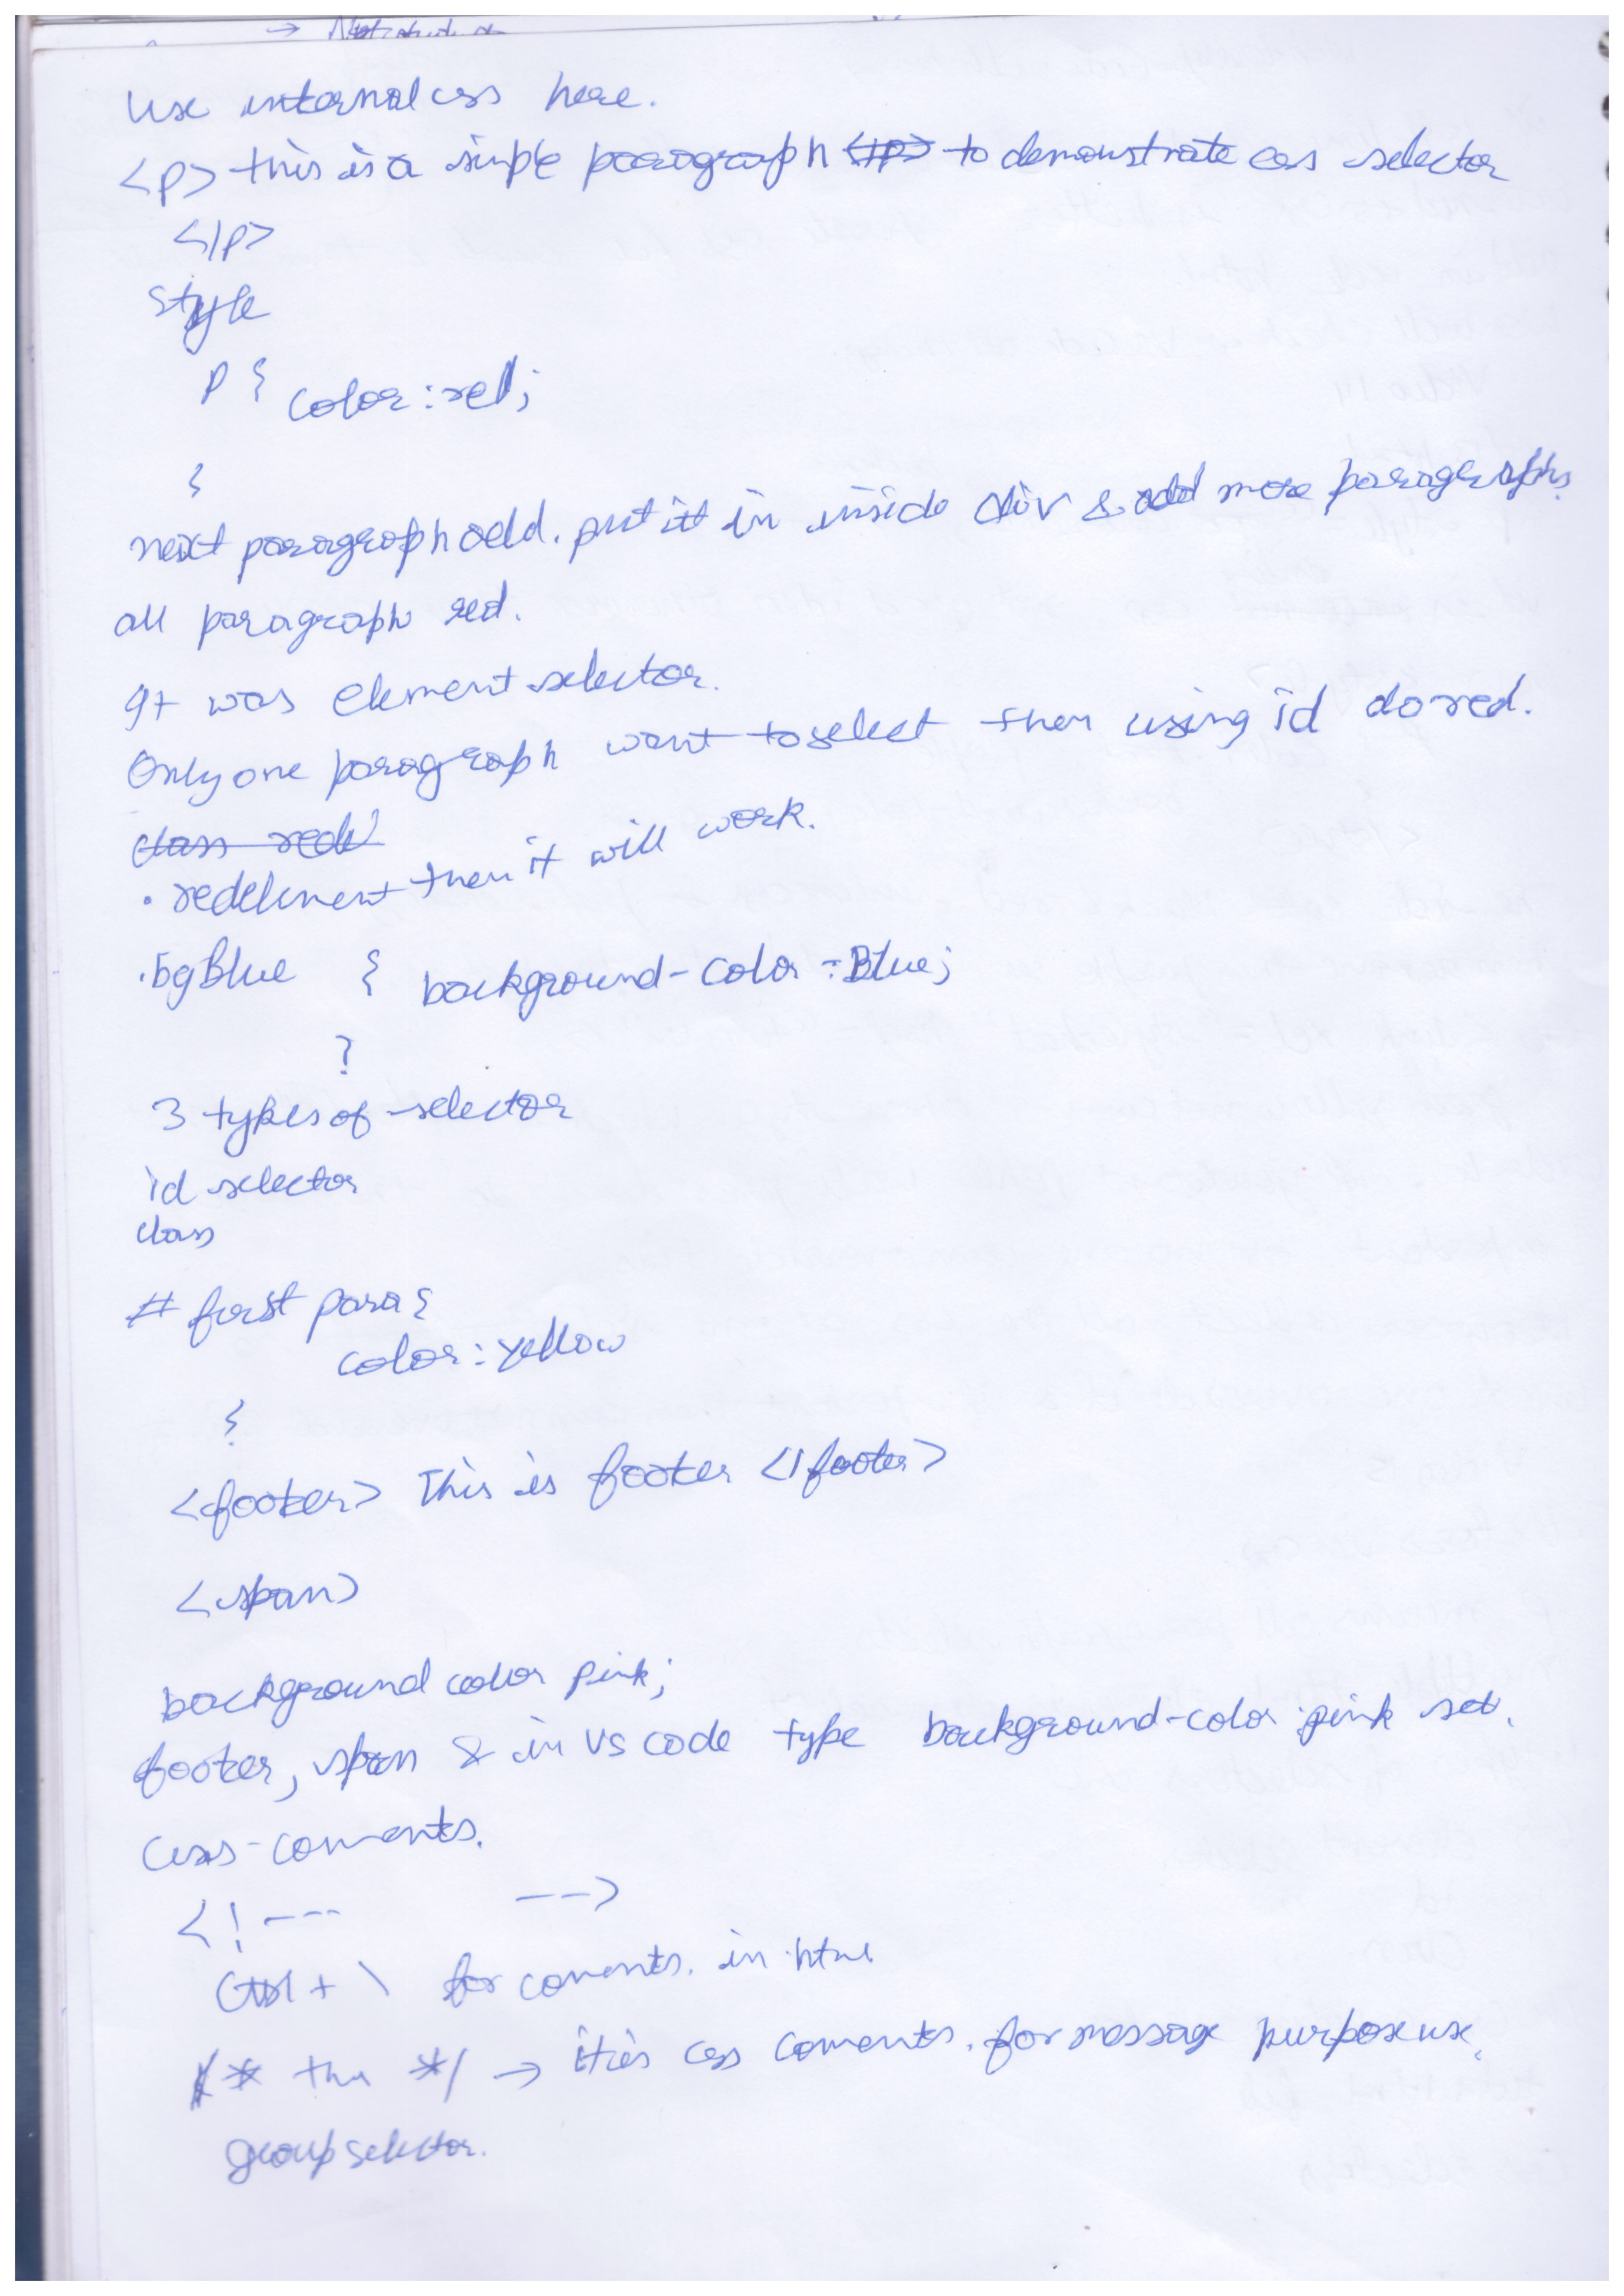 Use internal css here.
<p> this is a simple paragraph </p> to demonstrate css selector
</p>
style
p { color : red;
{
next paragraph add. put it in inside div & add more paragraphs.
all paragraph red.
It was element selector.
Only one paragraph want to select then using id do red.
class red
. redelement then it will work.
.bgBlue { background-color : Blue;
}
3 types of selector
id selector
class
# first para {
color : yellow
}
<footer> This is footer </footer>
<span>
background color pink;
footer, span & in vs code type background-color : pink set.
Css - coments.
<! --- -->
Ctrl + \ for coments. in html
/* the */ → it is css coments. for message purpose use.
group selector.